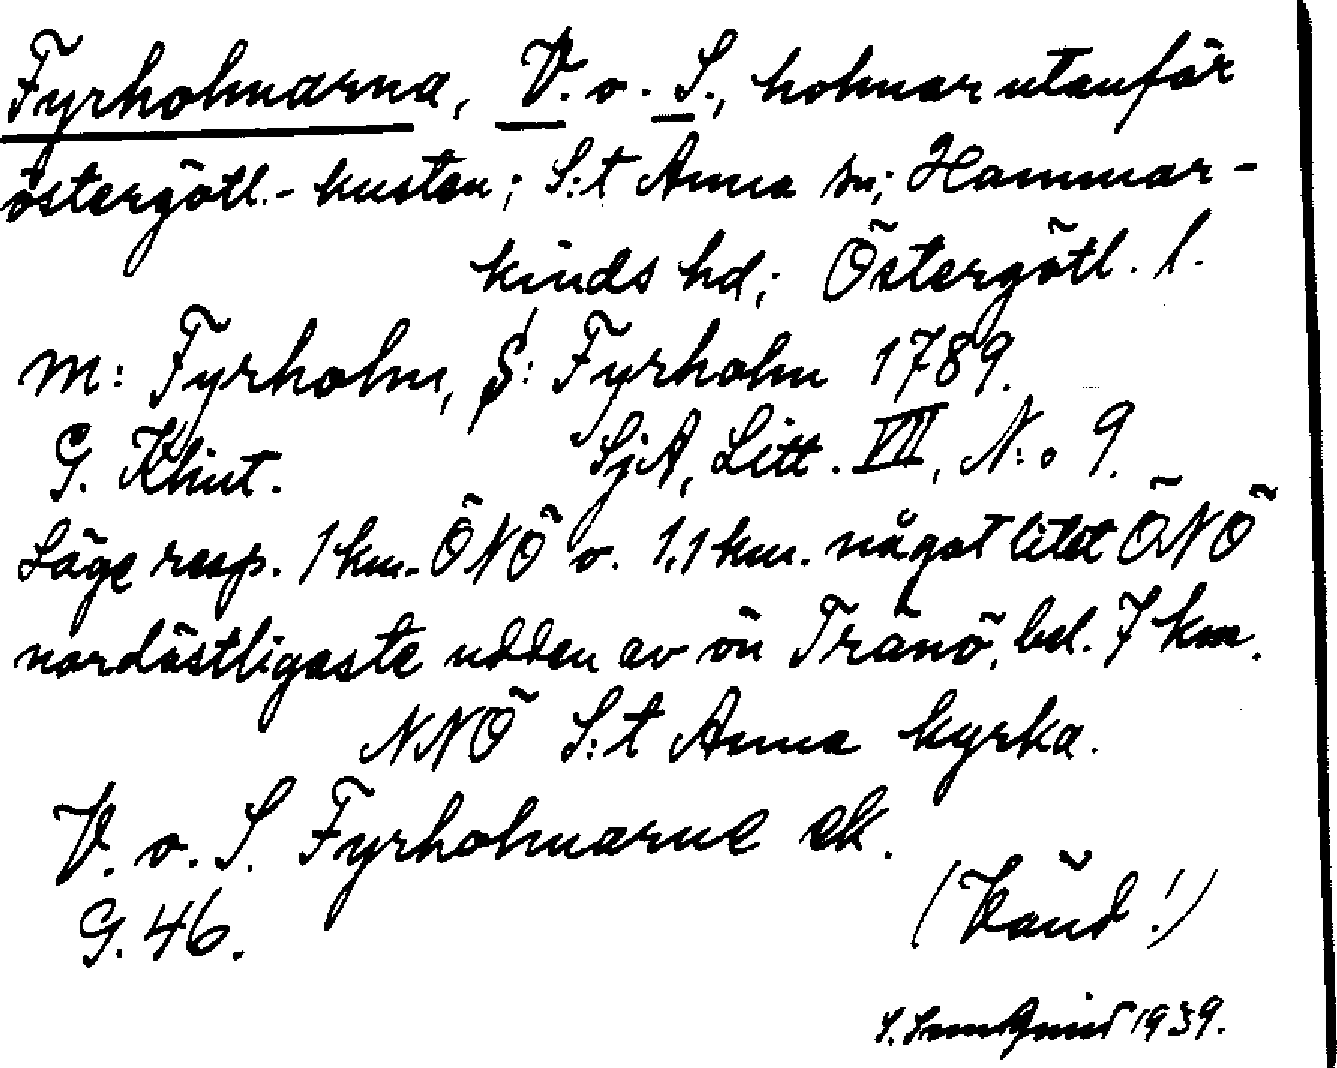 Fyrholmarna, V. o. S., holmar utanför
östergötl.- kusten; S:t Anna sn; Hammar-
kinds hd; Östergötl. l.
M: Fyrholm, S: Fyrholm 1789.
G. Klint. SjA, Litt. VII, N:o 9.
Läge resp. 1 km. ÖNÖ o. 1,1 km. något litet ÖNÖ
nordöstligaste udden av ön Tränö, bel. 7 km.
NNÖ S:t Anna kyrka.
V. o. S. Fyrholmarne ek.
G. 46.
(Vänd!)
1939.